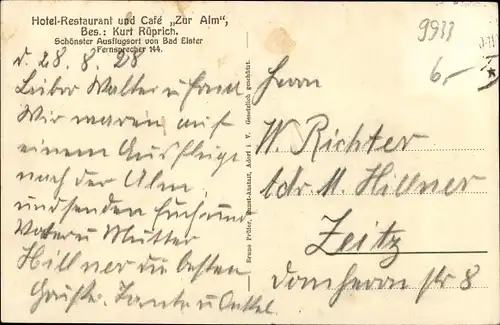 Hotel-Restaurant und Café „Zur Alm“,
Bes.: Kurt Rüprich.
Schönster Ausflugsort von Bad Elster
Fernsprecher 144.
d. 28. 8. 28
Lieber Walter u Frau
Wir waren auf
einem Ausfluge
nach der Alm,
und senden Euch und
Vater u Mutter
Hillner die besten
Grüße. Tante u Onkel.
Bruno Prüfer, Kunst-Anstalt, Adorf i. V. Gesetzlich geschützt.
9933
6,-
Herrn
W. Richter
Adr. M. Hillner
Zeitz
Domherrn str 8